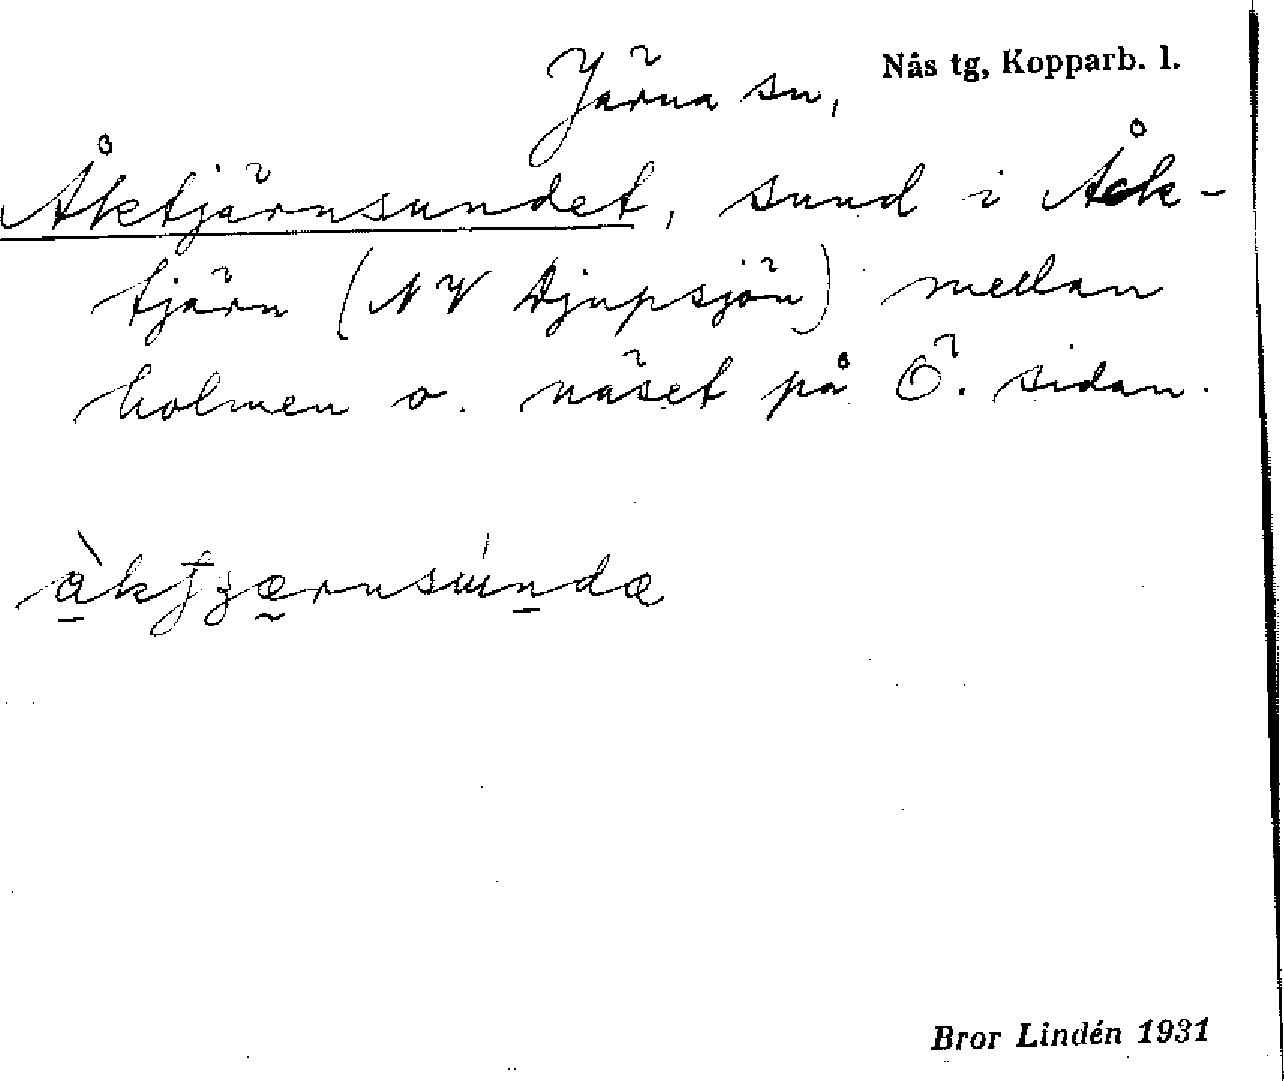 Järna sn, Nås tg, Kopparb. l.
Åktjärnsundet, sund i Åck-
tjärn (NV Djupsjön) mellan
holmen o. näset på Ö. sidan.
Bror Lindén 1931